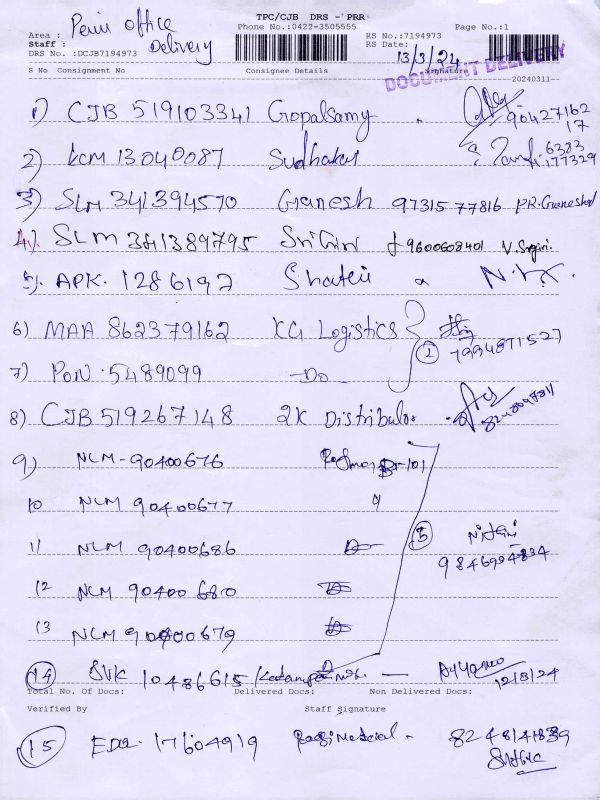 TPC/CJB DRS - PRR
Area : Peru office Phone No.:0422-3505555 Page No.:1
Staff : Delivery RS No.:7194973
DRS No. :DCJB7194973 RS Date: 13/3/24
S No Consignment No Consignee Details Signature
DOCUMENT DELIVERY
--20240311--
1) CJB 519103341 Gopalsamy 90427162
17
2) KCM 13040087 Sudhakar 6383
177329
3) SLM 341394570 Ganesh 97315 77816 PR.Ganeshal
4) SLM 341389795 Sri Giri 9600608401 V. Srigiri.
5) APK. 1286192
6) MAA 862379162 KG Logistics
7994871527
7) PON . 5489099 -Do- 2
8) CJB 519267148 2K Distributor 
9) NLM-90400676
10 NLM 90400677 "
11 NLM 90400686 5 Nithin
9846994834
12 NLM 90400680
13 NLM 90400679
14 SVK 10486615 12/3/24
Total No. Of Docs: Delivered Docs: Non Delivered Docs:
Verified By Staff Signature
15 EDQ. 17604919 8248141839